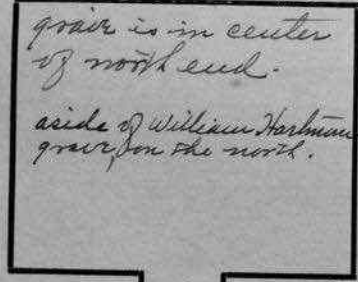 grair is in center
of north end.
aside of William Hartman
grair, on the north.